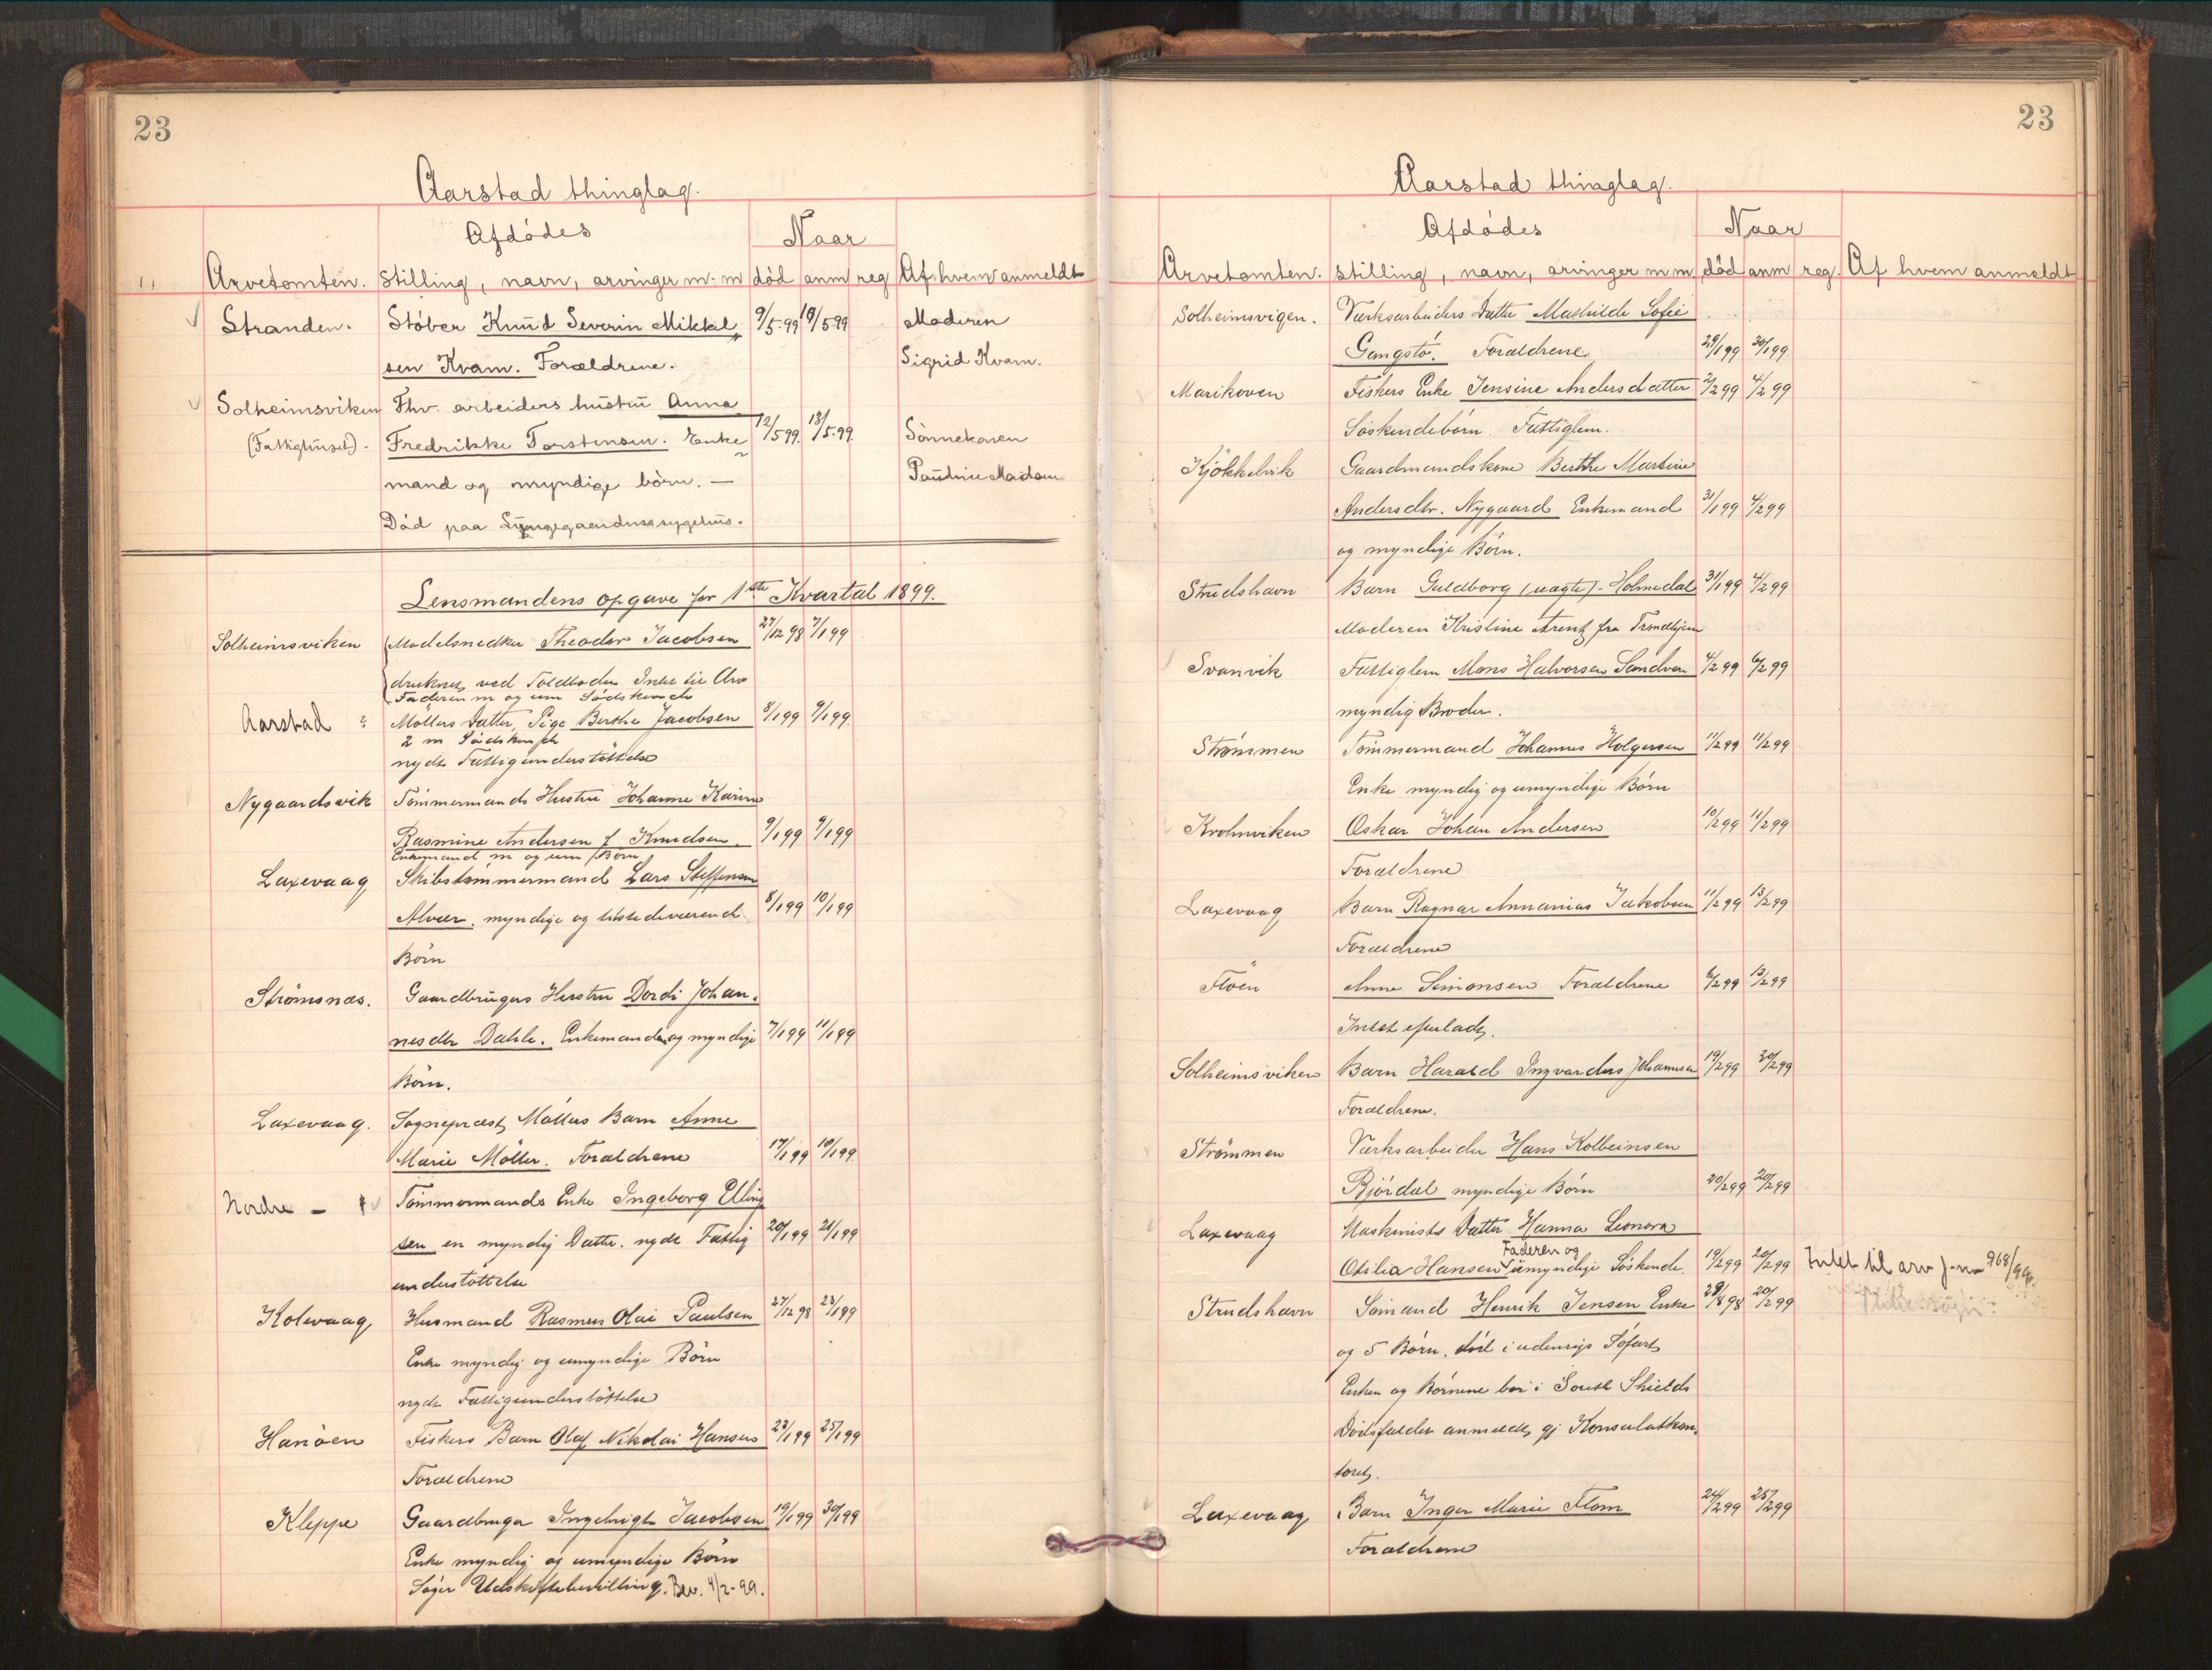 23
Aarstad thinglag.
Afdödes
Naar
Arvetomten. Stilling, navn, arvinger m.m död anm reg Af hvem anmeldt
Stranden. Stöber Knud Severin Mikkel 9/5.99 10/5.99 Moderen
sen Kvam. Forældrene. Sigrid Kvam.
Solheimsviken Fhv. arbeiders hustru Anna
(Fattighuset). Fredrikke Torstensen. Enke 12/5 99. 13/5.99. Sönnekonen
mand og myndige börn. — Pauline Madsen
Död paa Lungegaardnssygehus.
Lensmandens opgave for 1ste Kvartal 1899.
Solheimsviken Modelsnedker Theodor Jacobsen 27/12 98 7/1 99
druknet ved Toldboden Intet til Arv
Faderen m og um Södskende
Aarstad ? Möllers Datter, Pige Berthe Jacobsen 8/1 99 9/1 99
2 m Södskende
nydt Fattigunderstöttelse
Nygaardsvik Tömmermands Hustru Johanne Karine
Rasmine Andersen f Knudsen. 9/1 99 9/1 99
Enkemand m og um Börn
Laxevaag Skibstömmermand Lars Steffensen
Alvær. myndige og tilstedeværende 8/1 99 10/1 99
Börn
Strömsnæs. Gaardbrugers Hustru Dordi Johan-
nesdtr Dahle. Enkemand og myndige 7/1 99 11/1 99
Börn.
Laxevaag. Sogneprest Möllers Barn Anne
Marie Möller. Forældrene 17/1 99 18/1 99.
Nordre — Tömmermands Enke Ingeborg Elling
sen en myndig Datter. nydt Fattig 20/1 99 21/1 99
understöttelse
Kolevaag Husmand Rasmus Olai Paulsen 27/12 98 23/1 99
Enke myndig og umyndige Börn
nydt Fattigunderstöttelse
Hanöen Fiskers Barn Olaf Nikolai Hansen 23/1 99 25/1 99
Forældrene
Kleppe Gaardbruger Ingebrigt Jacobsen 19/1 99 30/1 99
Enke myndig og umyndige Börn
Söger Udskiftebevilling. Bev. 4/2-99.
23
Aarstad thinglag.
Afdödes
Naar
Arvetomten. stilling, navn, arvinger m m död anm reg. Af hvem anmeldt
Solheimsvigen. Værksarbeiders Datter Mathilde Sofie
Gangstö. Forældrene 29/1 99 30/1 99.
Marikoven Fiskers Enke Jensine Andersdatter 2/2 99 4/2 99
Söskendebörn. Fattiglem.
Kjökkelvik Gaardmandskone Berthe Martine
Andersdtr. Nygaard Enkemand 31/1 99 4/2 99
og myndige Börn.
Strudshavn Barn Guldborg (uægte) - Holmedal 31/1 99 4/2 99
Moderen Kristine Arentz fra Trondhjem
Svanvik Fattiglem Mons Halvorsen Sandven 4/2 99 6/2 99
myndig Broder.
Strömmen Tömmermand Johannes Holgersen 11/2 99 11/2 99
Enke myndig og umyndige Börn
Krohnviken Oskar Johan Andersen 10/2 99 11/2 99
Forældrene
Laxevaag Barn Ragnar Annanias Jakobsen 11/2 99 13/2 99
Forældrene
Flöen Anne Simonsen Forældrene 6/2 99 13/2 99
Intet efterladt.
Solheimsviken Barn Harald Ingvardus Johannesen 19/2 99 20/2 99
Forældrene.
Strömmen Værksarbeider Hans Kolbeinsen
Björdal myndige Börn 20/2 99 20/2 99
Laxevaag Maskinists Datter Hanna Leonora
Faderen og
Otilia Hansen umyndige Söskende. 19/2 99 20/2 99 Intet til arv j-no 968/99.
Strudshavn Sömand Henrik Jensen Enke 29/8 98 20/2 99
og 5 Börn. död i udenrigs Söfart
Enken og Börnene bor i South Shields
Dödsfaldet anmeldt gj Konsulatkon-
toret.
Laxevaag Barn Inger Marie Flom 24/2 99 25/2 99
Forældrene